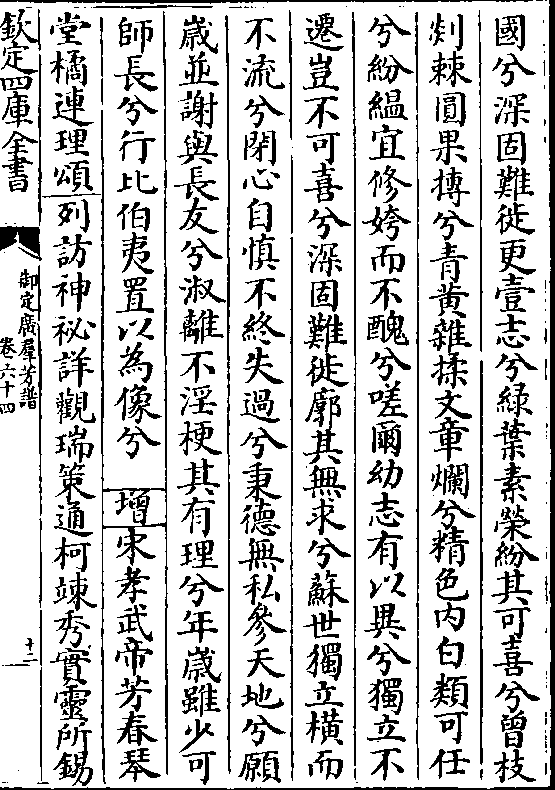 國兮深固難徙更壹志兮緑葉素榮紛其可喜兮曾枝
剡棘圓果摶兮青黄雜揉文章爛兮精色内白類可任
兮紛緼宜修姱而不醜兮嗟爾幼志有以異兮獨立不
遷豈不可喜兮深固難徙廓其無求兮蘇世獨立橫而
不流兮閉心自慎不終失過兮秉德無私參天地兮願
嵗並謝與長友兮淑離不淫梗其有理兮年嵗雖少可
師長兮行比伯夷置以為像兮 增宋孝武帝芳春琴
堂橘連理頌列訪神祕詳觀瑞策通柯竦秀實靈所錫
欽定四庫全書
御定廣羣芳譜
卷六十四
十二